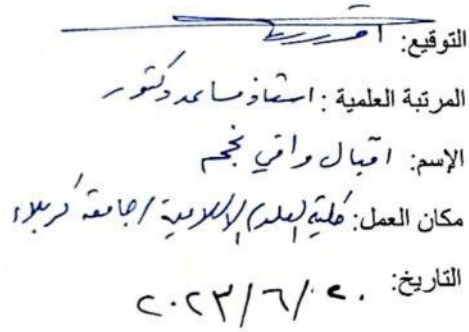 التوقيع:
المرتبة العلمية : استاذ مساعد دكتور
الإسم: اقبال وافي نجم
مكان العمل: كلية العلوم الإسلامية / جامعة كربلاء
التاريخ: ٢٠٢٣/٦/٢٠